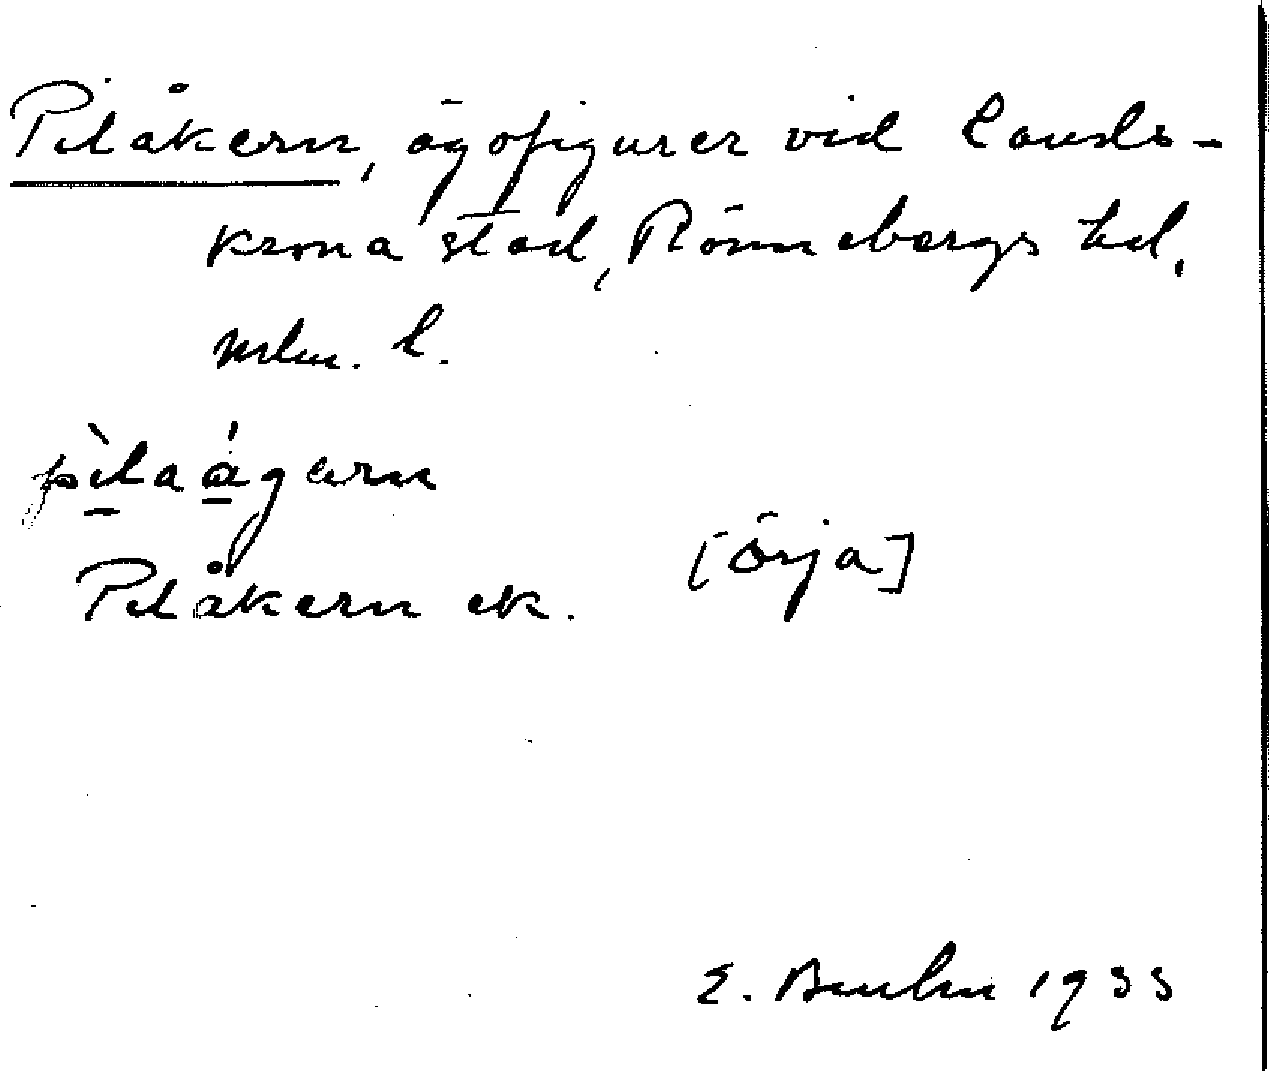 Pilåkern, ägofigurer vid Lands-
krona stad, Rönnebergs hd.
Mlm. l.
pìlaágern
Pilåkern ek. [Örja]
E. 1933